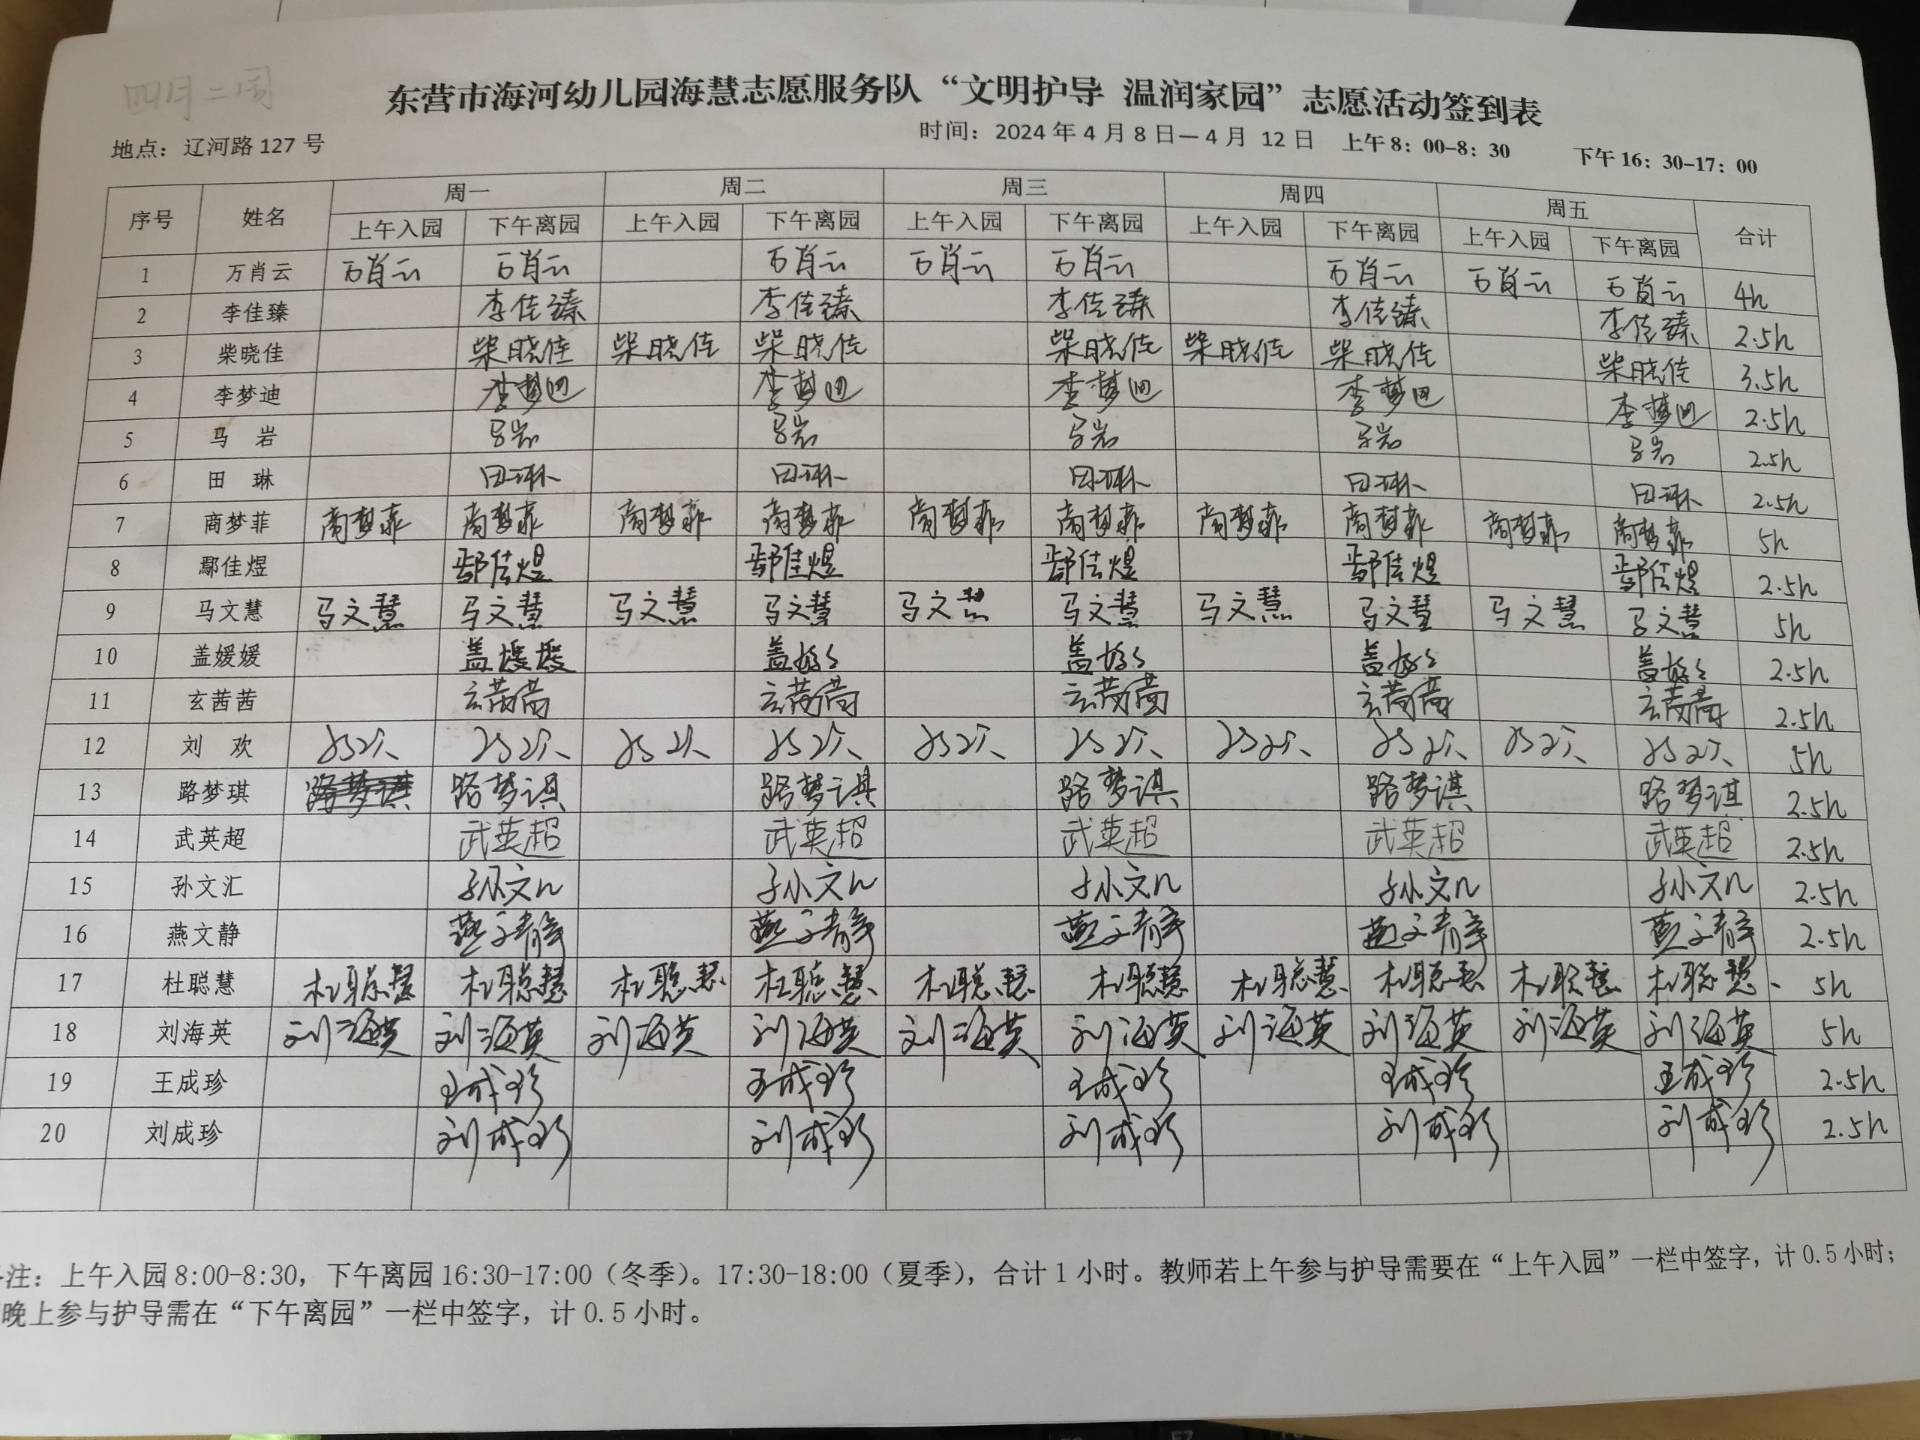 四月二周
东营市海河幼儿园海慧志愿服务队“文明护导 温润家园”志愿活动签到表
地点：辽河路 127 号 时间：2024 年 4 月 8 日—4 月 12 日 上午 8：00-8：30 下午 16：30-17：00
序号 姓名 周一 周二 周三 周四 周五 合计
上午入园 下午离园 上午入园 下午离园 上午入园 下午离园 上午入园 下午离园 上午入园 下午离园
1 万肖云 万肖云 万肖云 万肖云 万肖云 万肖云 万肖云 万肖云 万肖云 4h
2 李佳臻 李佳臻 李佳臻 李佳臻 李佳臻 李佳臻 2.5h
3 柴晓佳 柴晓佳 柴晓佳 柴晓佳 柴晓佳 柴晓佳 柴晓佳 柴晓佳 3.5h
4 李梦迪 李梦迪 李梦迪 李梦迪 李梦迪 李梦迪 2.5h
5 马 岩 马岩 马岩 马岩 马岩 马岩 2.5h
6 田 琳 田琳 田琳 田琳 田琳 田琳 2.5h
7 商梦菲 商梦菲 商梦菲 商梦菲 商梦菲 商梦菲 商梦菲 商梦菲 商梦菲 商梦菲 商梦菲 5h
8 鄢佳煜 鄢佳煜 鄢佳煜 鄢佳煜 鄢佳煜 鄢佳煜 2.5h
9 马文慧 马文慧 马文慧 马文慧 马文慧 马文慧 马文慧 马文慧 马文慧 马文慧 马文慧 5h
10 盖媛媛 盖媛媛 盖媛媛 盖媛媛 盖媛媛 盖媛媛 2.5h
11 玄茜茜 玄茜茜 玄茜茜 玄茜茜 玄茜茜 玄茜茜 2.5h
12 刘 欢 刘欢 刘欢 刘欢 刘欢 刘欢 刘欢 刘欢 刘欢 刘欢 刘欢 5h
13 路梦琪 路梦琪 路梦琪 路梦琪 路梦琪 路梦琪 路梦琪 2.5h
14 武英超 武英超 武英超 武英超 武英超 武英超 2.5h
15 孙文汇 孙文汇 孙文汇 孙文汇 孙文汇 孙文汇 2.5h
16 燕文静 燕文静 燕文静 燕文静 燕文静 燕文静 2.5h
17 杜聪慧 杜聪慧 杜聪慧 杜聪慧 杜聪慧 杜聪慧 杜聪慧 杜聪慧 杜聪慧 杜聪慧 杜聪慧 5h
18 刘海英 刘海英 刘海英 刘海英 刘海英 刘海英 刘海英 刘海英 刘海英 刘海英 刘海英 5h
19 王成珍 王成珍 王成珍 王成珍 王成珍 王成珍 2.5h
20 刘成珍 刘成珍 刘成珍 刘成珍 刘成珍 刘成珍 2.5h
注：上午入园 8:00-8:30，下午离园 16:30-17:00（冬季）。17:30-18:00（夏季），合计 1 小时。教师若上午参与护导需要在“上午入园”一栏中签字，计 0.5 小时；
晚上参与护导需在“下午离园”一栏中签字，计 0.5 小时。